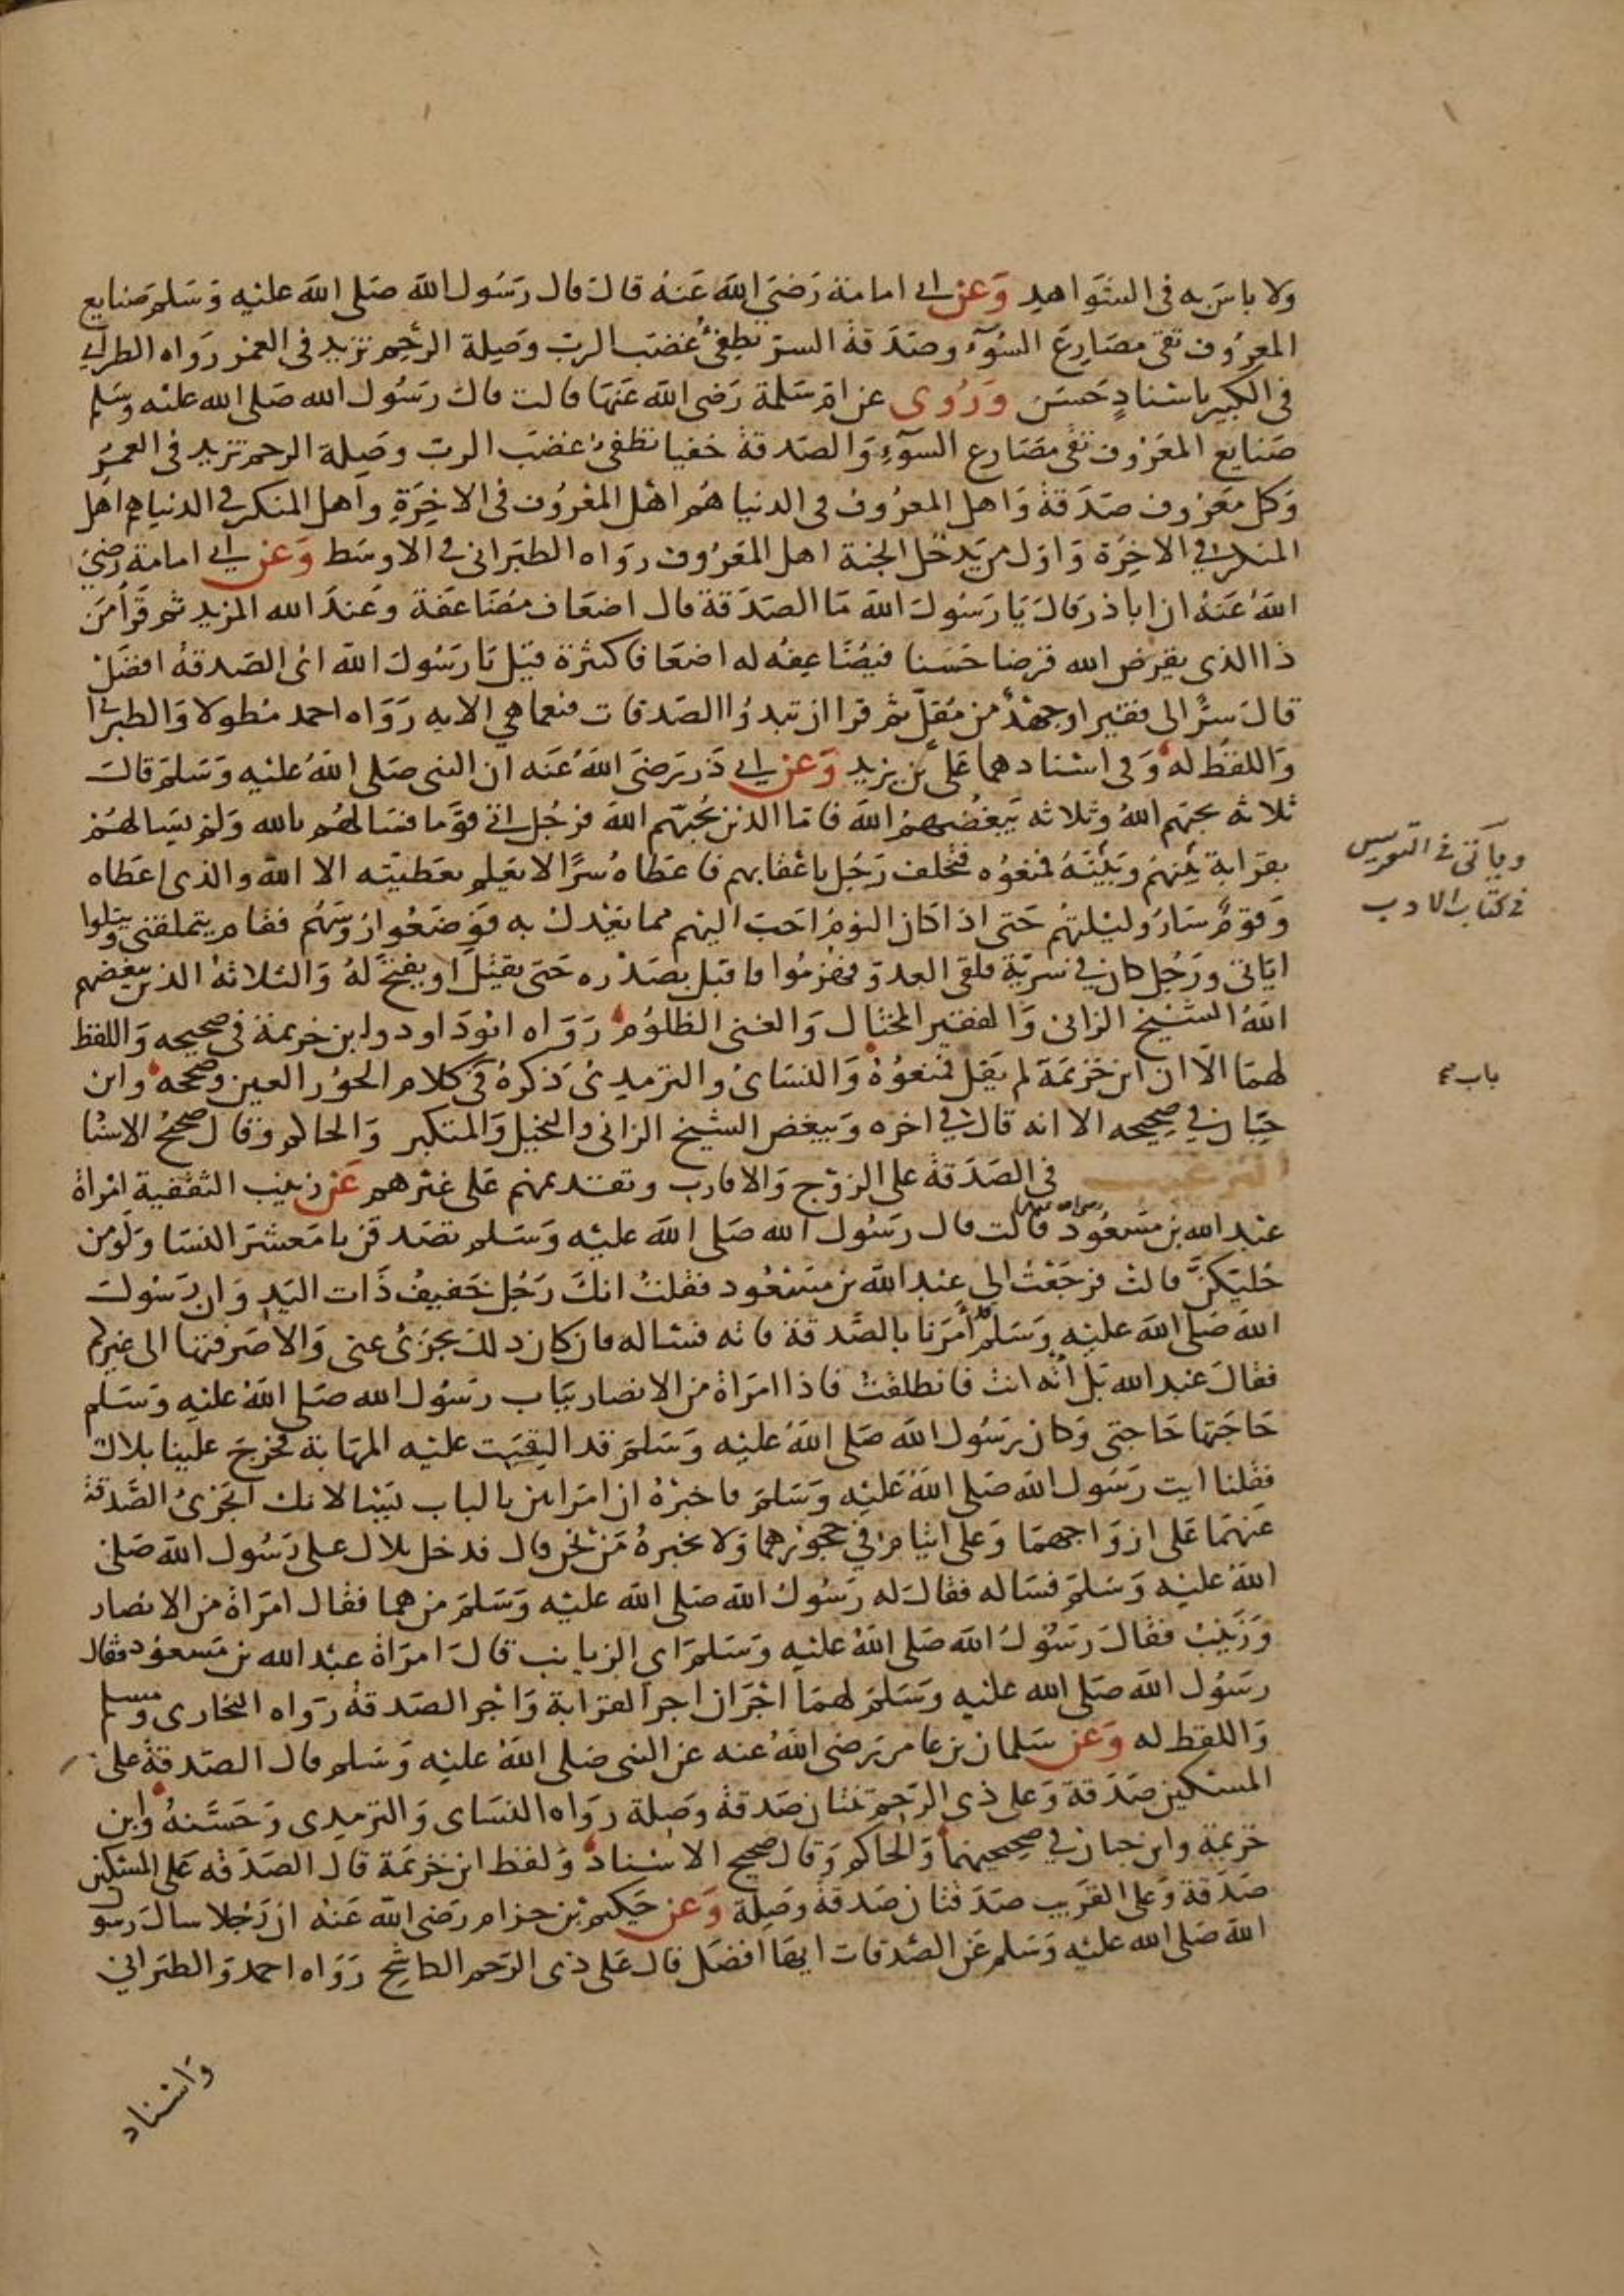 ولا باس به فى الشواهد وعن ابى امامة رضى الله عنه قال قال رسول الله صلى الله عليه وسلم صنايع
المعروف تقى مصارع السوء وصدقة السر تطفئ غضب الرب وصلة الرحم تزيد فى العمر رواه الطبرانى
فى الكبير باسناد حسن وروى عن ام سلمة رضى الله عنها قالت قال رسول الله صلى الله عليه وسلم
صنايع المعروف تقى مصارع السوء والصدقة خفيا تطفئ غضب الرب وصلة الرحم تزيد فى العمر
وكل معروف صدقة واهل المعروف فى الدنيا هم اهل المعروف فى الاخرة واهل المنكر فى الدنيا هم اهل
المنكر فى الاخرة واول من يدخل الجنة اهل المعروف رواه الطبرانى فى الاوسط وعن ابى امامة رضى
الله عنه ان اباذر قال يا رسول الله ما الصدقة قال اضعاف مضاعفة وعند الله المزيد ثم قرأ من
ذا الذى يقرض الله قرضا حسنا فيضاعفه له اضعافا كثيرة قيل يا رسول الله اى الصدقة افضل
قال سر الى فقير او جهد من مقل ثم قرا ان تبدوا الصدقات فنعما هى الايه رواه احمد مطولا والطبرانى
واللفظ له وفى اسنادهما على بن يزيد وعن ابى ذر رضى الله عنه ان النبى صلى الله عليه وسلم قال
ثلاثة يحبهم الله وثلاثه يبغضهم الله فاما الذين يحبهم الله فرجل اتى قوما فسالهم بالله ولم يسالهم
بقرابة بينهم وبينه فمنعوه فتخلف رجل باعقابهم فاعطاه سرا لا يعلم بعطيته الا الله والذى اعطاه
وقوم ساروا ليلتهم حتى اذا كان النوم احب اليهم مما يعدل به فوضعوا رؤسهم فقام يتملقنى ويتلوا
اياتى ورجل كان فى سرية فلقى العدو فهزموا فاقبل بصدره حتى يقتل او يفتح له والثلاثة الذين يبغضهم
الله الشيخ الزانى والفقير المختال والغنى الظلوم رواه ابوداود وابن خزيمة فى صحيحه واللفظ
لهما الا ان ابن خزيمة لم يقل فمنعوه والنساى والترمدى ذكره فى كلام الحور العين وصححه وابن
حبان فى صحيحه الا انه قال فى اخره ويبغض الشيخ الزانى والبخيل والمتكبر والحاكم وقال صحيح الاسنا
الترغيب فى الصدقة على الزوج والاقارب وتقديمهم على غيرهم عن زينب الثقفية امراة
عبد الله بن مسعود رضى الله عنهما قالت قال رسول الله صلى الله عليه وسلم تصدقن يا معشر النسا ولو من
حليكن قالت فرجعت الى عبد الله بن مسعود فقلت انك رجل خفيف ذات اليد وان رسول
الله صلى الله عليه وسلم قد امرنا بالصدقة فاته فسئاله فان كان ذلك يجزئ عنى والا صرفتها الى غيركم
فقال عبد الله بل ائته انت فانطلقت فاذا امراة من الانصار بباب رسول الله صلى الله عليه وسلم
حاجتها حاجتى وكان رسول الله صلى الله عليه وسلم قد القيت عليه المهابة فخرج علينا بلال
فقلنا ايت رسول الله صلى الله عليه وسلم فاخبره ان امراتين بالباب يسالانك اتجزئ الصدقة
عنهما على ازواجهما وعلى ايتام فى حجورهما ولا تخبره من نحن قال فدخل بلال على رسول الله صلى
الله عليه وسلم فساله فقال له رسول الله صلى الله عليه وسلم من هما فقال امراة من الانصار
وزينب فقال رسول الله صلى الله عليه وسلم اى الزيانب قال امراة عبد الله بن مسعود فقال
رسول الله صلى الله عليه وسلم لهما اجران اجر القرابة واجر الصدقة رواه البخارى ومسلم
واللفظ له وعن سلمان بن عامر رضى الله عنه عن النبى صلى الله عليه وسلم قال الصدقة على
المسكين صدقة وعلى ذى الرحم ثنتان صدقة وصلة رواه النساى والترمدى وحسنه وابن
خزيمة وابن حبان فى صحيحيهما والحاكم وقال صحيح الاسناد ولفظ ابن خزيمة قال الصدقة على المسكين
صدقة وعلى القريب صدقتان صدقة وصلة وعن حكيم بن حزام رضى الله عنه ان رجلا سال رسول
الله صلى الله عليه وسلم عن الصدقات ايها افضل قال على ذى الرحم الكاشح رواه احمد والطبرانى
واسناد
ويأتى فى
فى كتاب الادب
باب